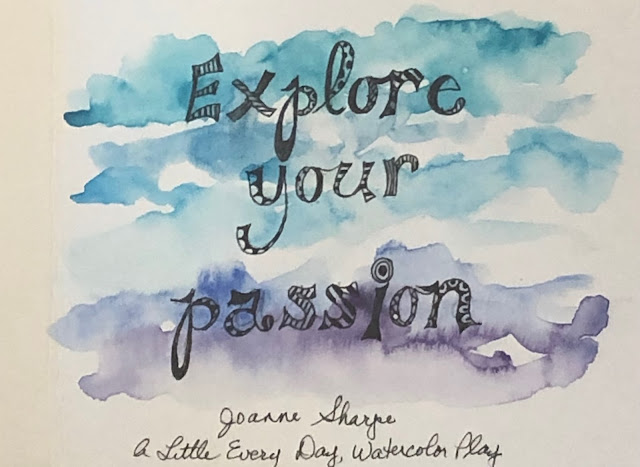 Explore
your
passion
Joanne Sharpe
A Little Every Day, Watercolor Play